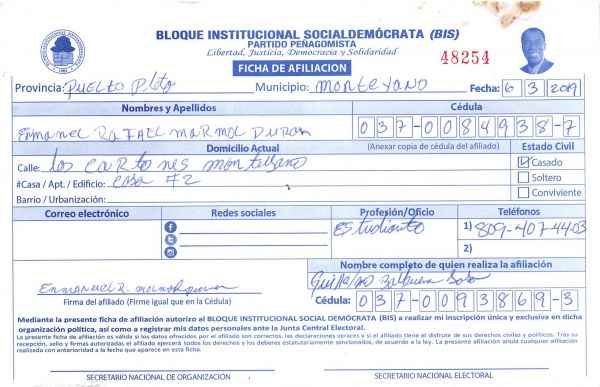 BLOQUE INSTITUCIONAL SOCIALDEMÓCRATA (BIS)
PARTIDO PEÑAGOMISTA
Libertad, Justicia, Democracia y Solidaridad
48254
FICHA DE AFILIACION
Provincia: Puelto plata Municipio: montevano Fecha: 6 3 2019
Nombres y Apellidos Cédula
Emmanel RAFAEL MARMOL DURAN 037-0084938-7
Domicilio Actual (Anexar copia de cédula del afiliado) Estado Civil
Calle: los cartones montellano Casado
#Casa / Apt. / Edificio: casa #2 Soltero
Barrio / Urbanización: Conviviente
Correo electrónico Redes sociales Profesión/Oficio Teléfonos
Estudiante 1) 809-407-4403
2)
Nombre completo de quien realiza la afiliación
Emmanuel R.
Firma del afiliado (Firme igual que en la Cédula) Cédula: 037-0093869-3
Mediante la presente ficha de afiliación autorizo al BLOQUE INSTITUCIONAL SOCIAL DEMÓCRATA (BIS) a realizar mi inscripción única y exclusiva en dicha
organización política, así como a registrar mis datos personales ante la Junta Central Electoral.
La presente ficha de afiliación es válida si los datos ofrecidos por el afiliado son correctos, las declaraciones veraces y si el afiliado tiene el disfrute de sus derechos civiles y políticos. Tras su
recepción, sello y firmas autorizadas el afiliado ejercerá todos los derechos y los deberes estatutariamente sancionados, de acuerdo a la ley. La presente afiliación anula cualquier afiliación
realizada con anterioridad a la fecha que aparece en esta ficha.
SECRETARIO NACIONAL DE ORGANIZACIÓN SECRETARIO NACIONAL ELECTORAL